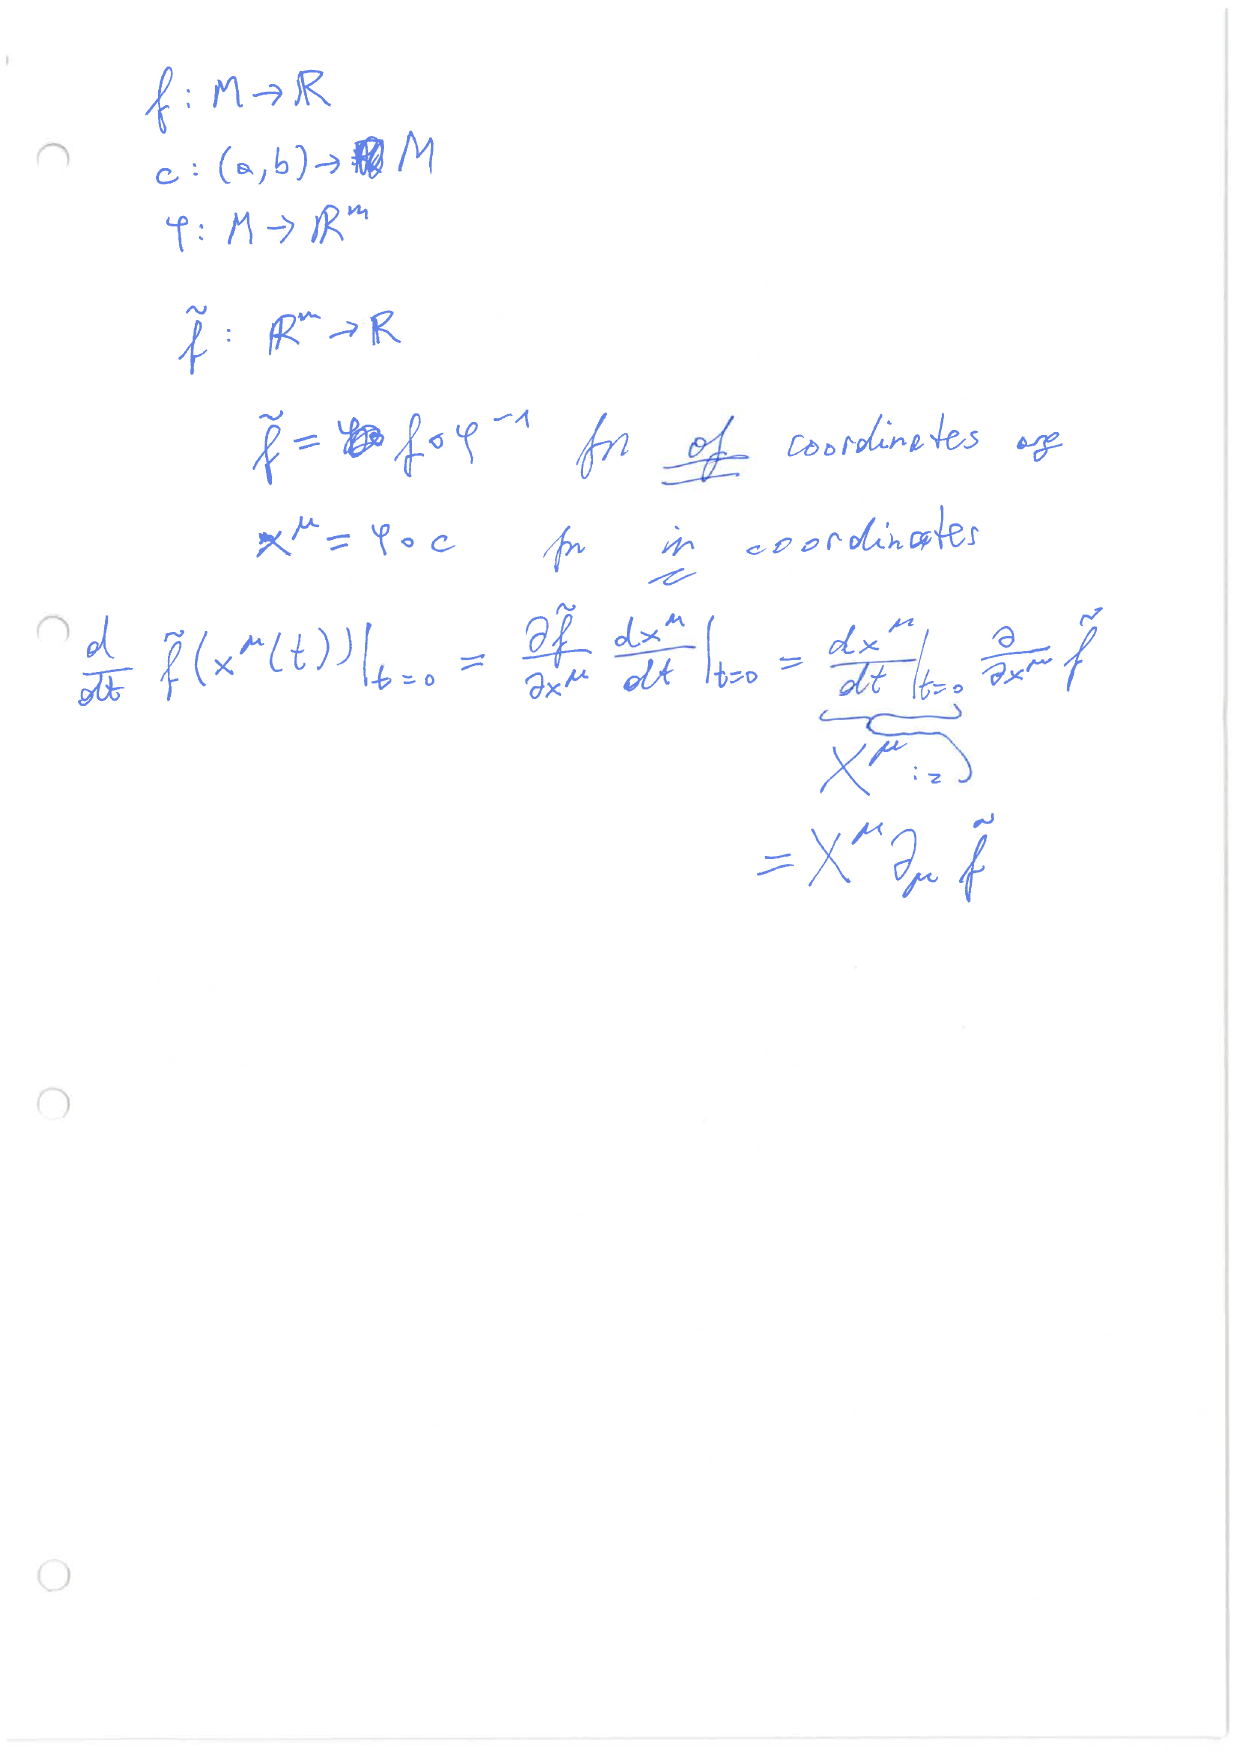 f : M → ℝ
c : (a,b) → M
φ : M → ℝᵐ
f̃ : ℝᵐ → ℝ
f̃ = f∘φ⁻¹ fn of coordinates
x^μ = φ∘c fn in coordinates
d/dt f̃(x^μ(t))|_{t=0} = ∂f̃/∂x^μ dx^μ/dt|_{t=0} = dx^μ/dt|_{t=0} ∂/∂x^μ f̃
X^μ :=
= X^μ ∂_μ f̃